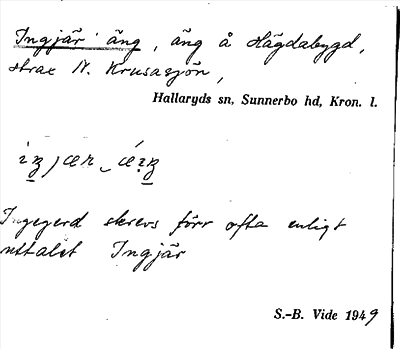 Ingjär äng, äng å Hägdabygd,
strax N. Krusasjön,
Hallaryds sn, Sunnerbo hd, Kron. l.
Ingegerd skrevs förr ofta enligt
uttalet Ingjär
S.-B. Vide 1949